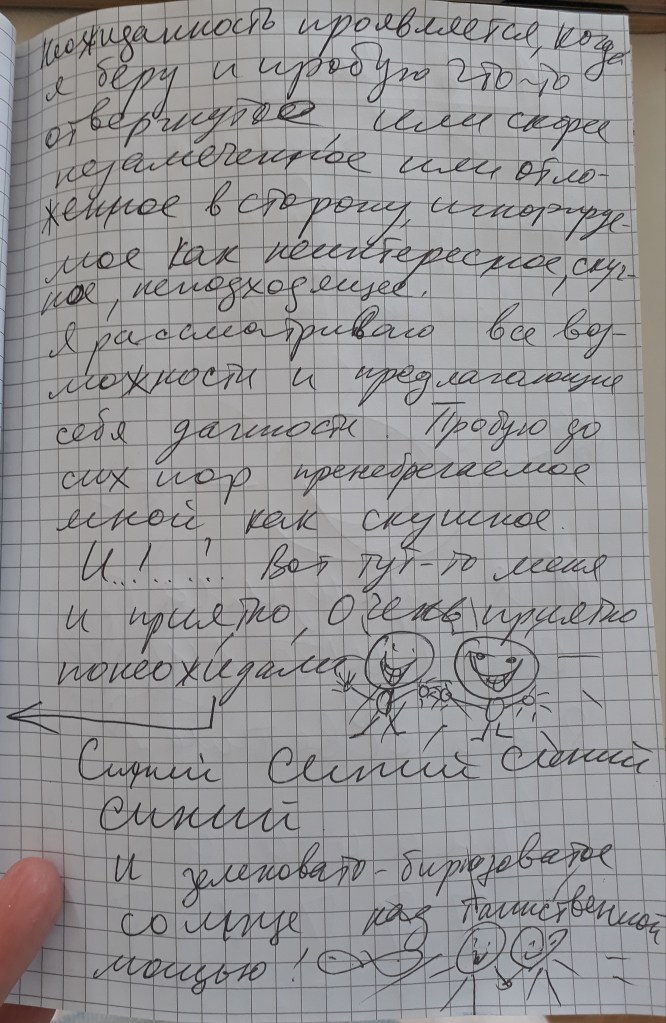 неожиданность проявляется, когда
я беру и пробую что-то
отвергнутое, или скорее
незамеченное или отло-
женное в сторону, игнорируе-
мое как неинтересное, скуч-
ное, неподходящее.
Я рассматриваю все воз-
можности и предлагающие
себя данности. Пробую до
сих пор пренебрегаемое
мной как скушное.
И..!...? Вот тут-то меня
и приятно, Очень приятно
понеожидали
Синий Синий Синий
Синий
И зеленовато-бирюзоватое
солнце над Таинственной
мощью!